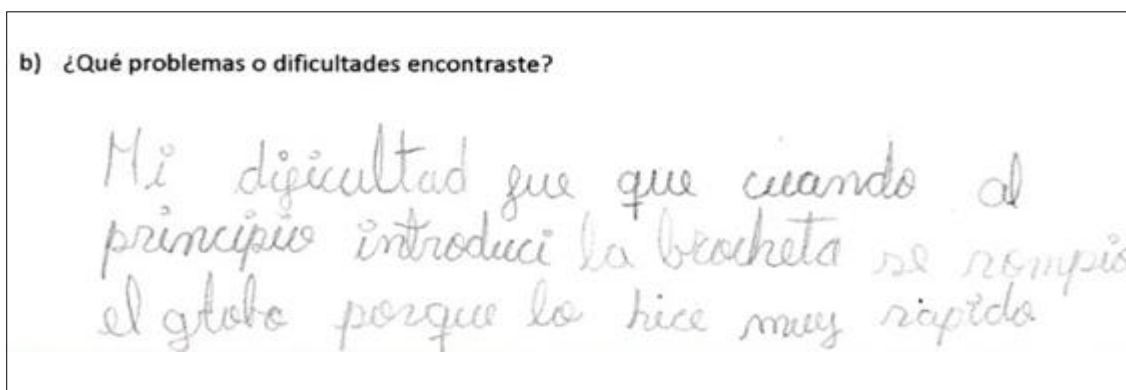 b) ¿Qué problemas o dificultades encontraste?
Mi dificultad fue que cuando al
principio introduci la brocheta se rompio
el globo porque lo hice muy rapido